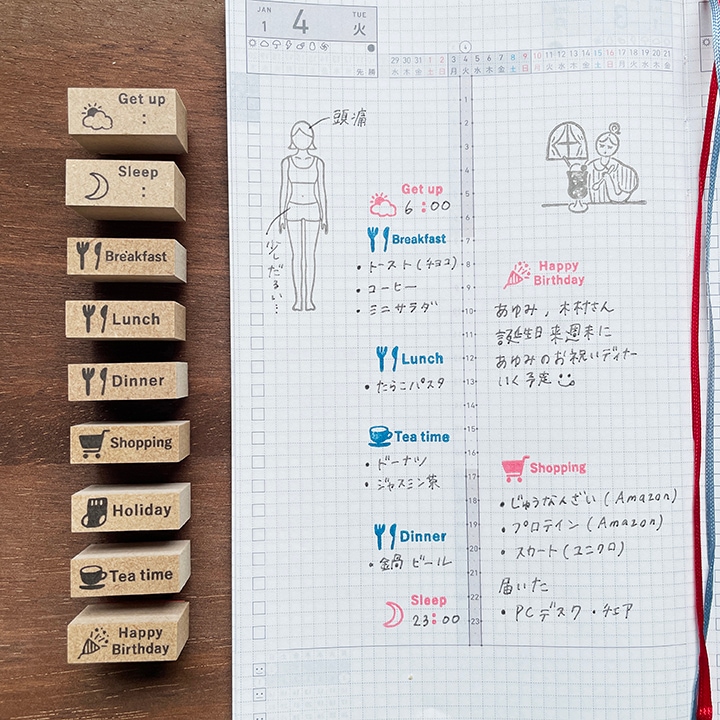 Get up
:
Sleep
:
Breakfast
Lunch
Dinner
Shopping
Holiday
Tea time
Happy
Birthday
JAN
1
4
TUE
火
先勝
29 30 31 1 2 3 4 5 6 7 8 9 10 11 12 13 14 15 16 17 18 19 20 21
水 木 金 土 日 月 火 水 木 金 土 日 月 火 水 木 金 土 日 月 火 水 木 金
頭痛
少しだるい…
Get up
6:00
Breakfast
・トースト(チョコ)
・コーヒー
・ミニサラダ
Lunch
・たらこパスタ
Tea time
・ドーナツ
・ジャスミン茶
Dinner
・鍋 ビール
Sleep
23:00
1
2
3
4
5
6
7
8
9
10
11
12
13
14
15
16
17
18
19
20
21
22
23
Happy
Birthday
あゆみ,木村さん
誕生日 来週末に
あゆみのお祝いディナー
いく予定
Shopping
・じゅうなんざい(Amazon)
・プロテイン(Amazon)
・スカート(ユニクロ)
届いた
・PCデスク・チェア